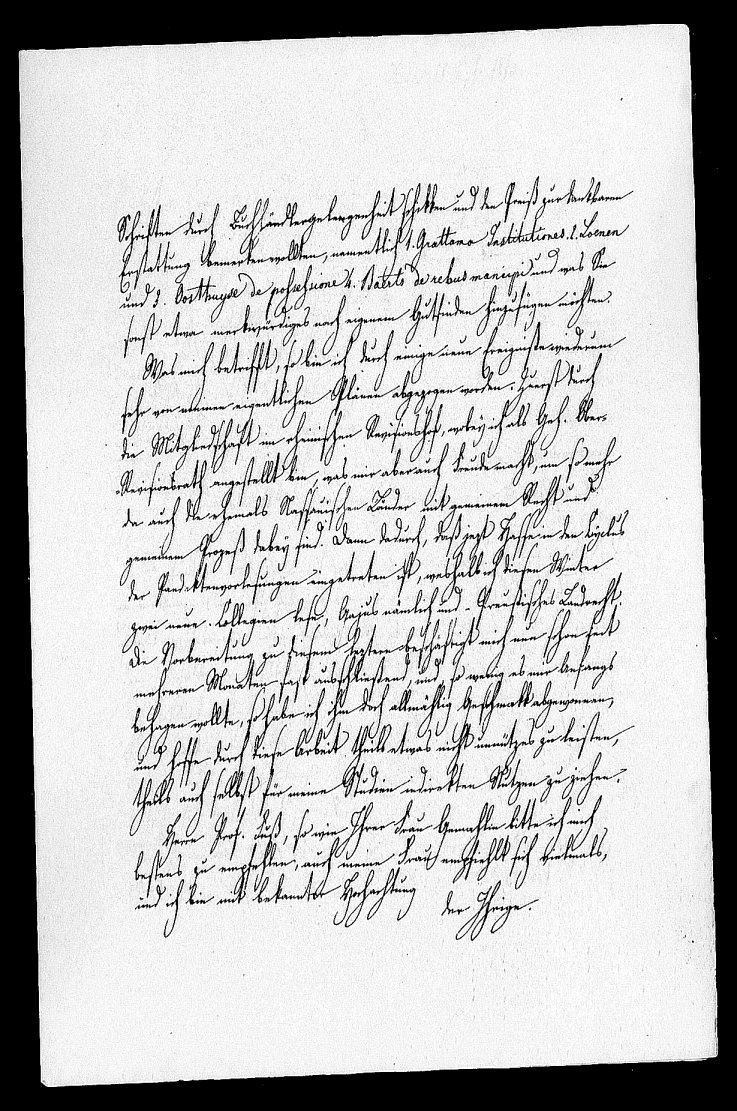 Schriften durch Buchhändlergelegenheit schikken und den Preiß zur dankbaren
Erstattung bemerken wollten, namentlich 1. Grattama Institutiones. 2. Loenen
und 3. Oosthuyse de possessione 4. Baerts de rebus mancipi und was Sie
sonst etwa merkwürdiges nach eigenem Gutfinden hinzufügen möchten.
Was mich betrifft, so bin ich durch einige neue Ereignisse wiederum
sehr von meinen eigentlichen Plänen abgezogen worden. Zuerst durch
die Mitgliedschaft im rheinischen Revisionshof, wobey ich als Geh. Ober-
Revisionsrath angestellt bin, was mir aber auch Freude macht, um so mehr
da auch die ehemals Nassauischen Länder mit gemeinem Recht und
gemeinem Prozeß dabey sind. Dann dadurch, daß jezt Hasse in den Cyclus
der Pandektenvorlesungen eingetreten ist, weshalb ich diesen Winter
zwei neue Collegien lese, Gajus nämlich und Preussisches Landrecht.
Die Vorbereitung zu diesem leztern beschäftigt mich nun schon seit
mehreren Monaten fast ausschliessend, und so wenig es mir Anfangs
behagen wollte, so habe ich ihm doch allmählig Geschmakk abgewonnen,
und hoffe durch diese Arbeit theils etwas nicht unnützes zu leisten,
theils auch selbst für meine Studien indirekten Nutzen zu ziehen.
Herrn Prof. Fuß, so wie Ihrer Frau Gemahlin bitte ich mich
bestens zu empfehlen, auch meine Frau empfiehlt sich vielmals,
und ich bin mit bekannter Hochachtung
der Ihrige.